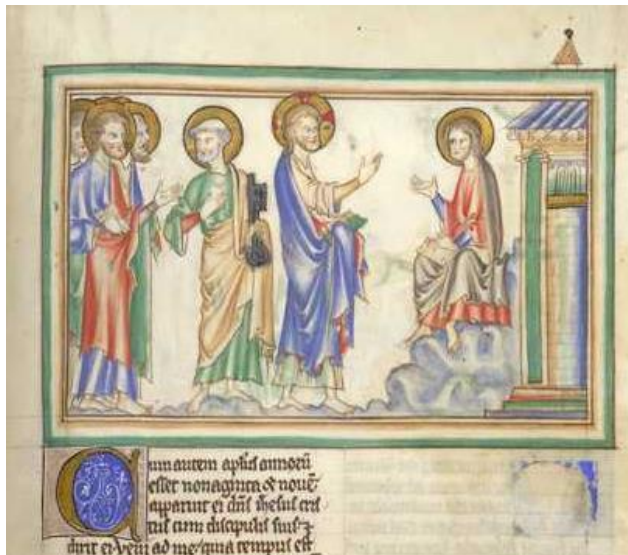 Cum autem aptus annoru
esset nonaginta & noue
aparuit ei dns ihesus cris
tus cum discipulis suis &
dixit ei ueni ad me quia tempus est